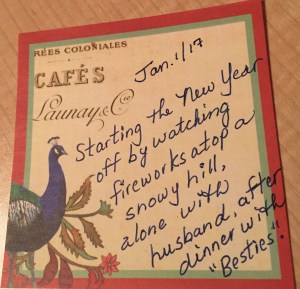 RÉES COLONIALES
CAFÉS
Launay & Co
Jan. 1/17
Starting the New Year
off by watching
fireworks atop a
snowy hill,
alone with
husband, after
dinner with
"Besties".